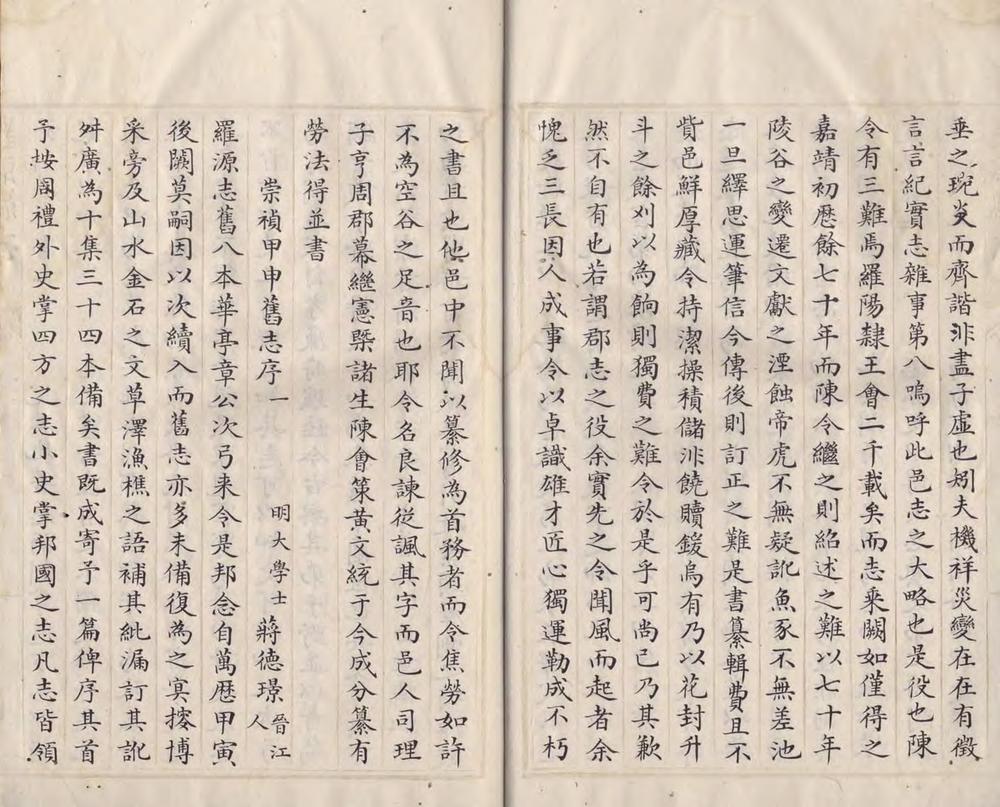 垂之琬炎而齊諧非盡子虛也矧夫機祥災變在在有徵
言言紀實志雜事第八嗚呼此邑志之大略也是役也陳
令有三難焉羅陽隸王會二千載矣而志乘闕如僅得之
嘉靖初歷餘七十年而陳令繼之則紹述之難以七十年
陵谷之變遷文獻之湮蝕帝虎不無疑訛魚豕不無差池
一旦繹思運筆信今傳後則訂正之難是書纂輯費且不
貲邑鮮厚藏令持潔操積儲非饒贖鍰烏有乃以花封升
斗之餘刈以為餉則獨費之難令於是乎可尚已乃其歉
然不自有也若謂郡志之役余實先之令聞風而起者余
愧乏三長因人成事令以卓識雄才匠心獨運勒成不朽
之書且也他邑中不聞以纂修為首務者而令焦勞如許
不為空谷之足音也耶令名良諫從諷其字而邑人司理
子亨周郡幕繼憲槩諸生陳會策黃文統于今成分纂有
勞法得並書
崇禎甲申舊志序一 明大學士 蔣德璟 晉江人
羅源志舊八本華亭章公次弓来令是邦念自萬歷甲寅
後闕莫嗣因以次續入而舊志亦多未備復為之㝠搜博
采旁及山水金石之文草澤漁樵之語補其紕漏訂其訛
舛廣為十集三十四本備矣書既成寄予一篇俾序其首
予按閣禮外史掌四方之志小史掌邦國之志凡志皆領